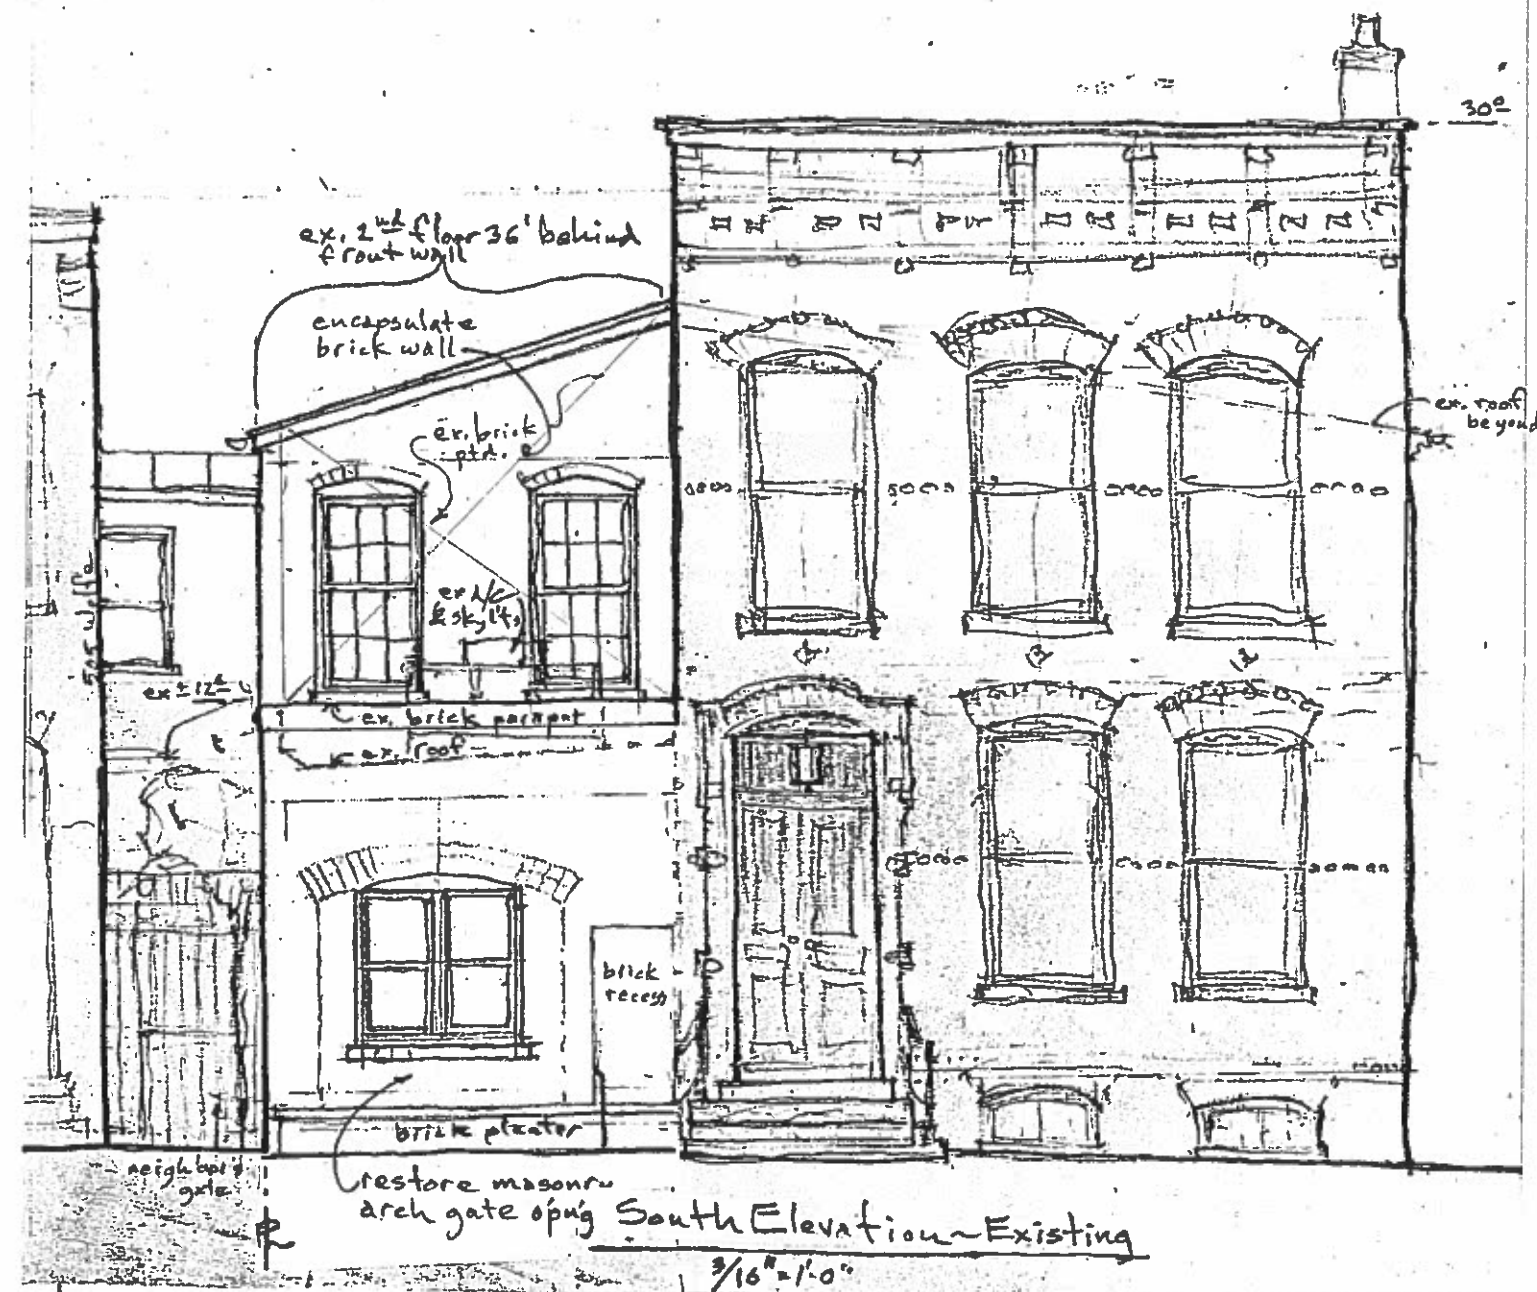 30⁰
ex. 2nd floor 36' behind
front wall
encapsulate
brick wall
ex. brick
ptd.
ex. roof
beyond
ex A/C
& skylts
ex ± 12⁶
ex. brick parapet
ex. roof
brick
recess
brick planter
neighbor's
gate
restore masonry
arch gate op'n'g
South Elevation~Existing
3/16"=1'-0"